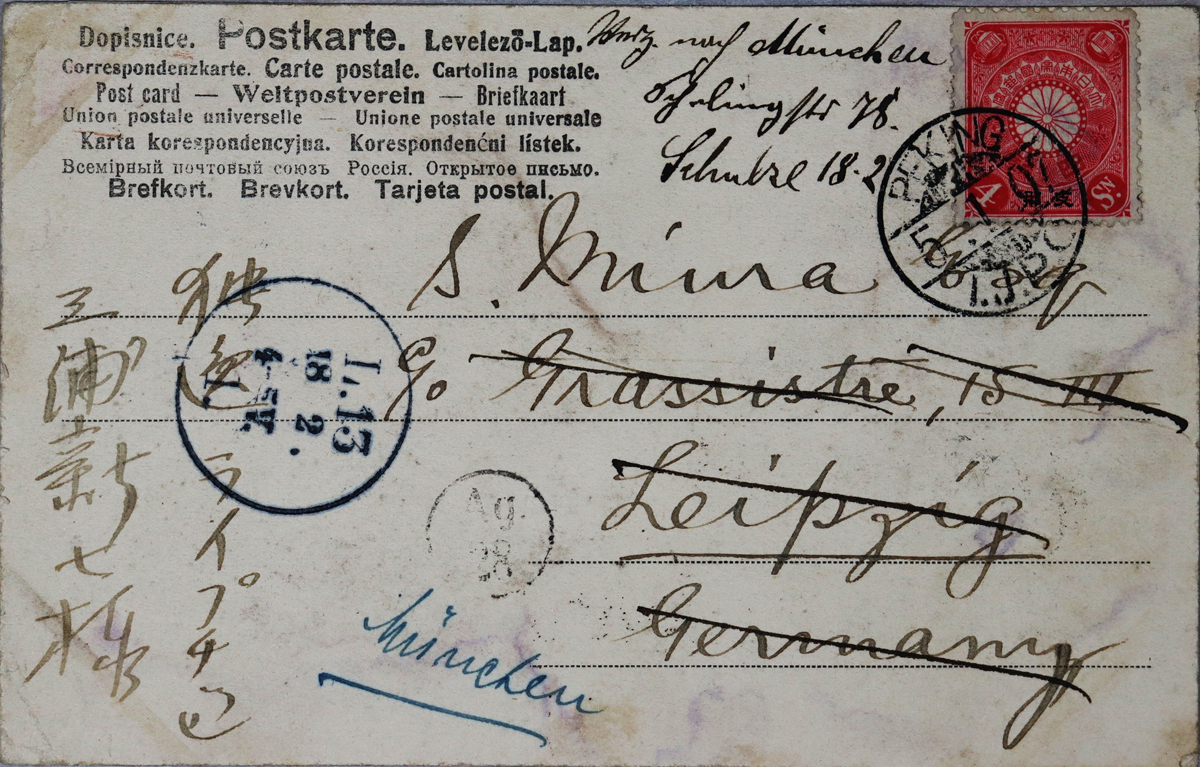 Dopisnice. Postkarte. Levelező-Lap.
Correspondenzkarte. Carte postale. Cartolina postale.
Post card — Weltpostverein — Briefkaart
Union postale universelle — Unione postale universale
Karta korespondencyjna. Korespondenćni lístek.
Всемірный почтовый союзъ Россія. Открытое письмо.
Brefkort. Brevkort. Tarjeta postal.
nach München
78.
Schulze 18-2
4 Sn.
PEKING
I.J.P.O.
S. Miura Esq
c/o Grassistre, 15 III
Leipzig
Germany
München
L.13
18 2.
4-5V.
Ag.
28
独逸ライプチヒ
三浦新七様